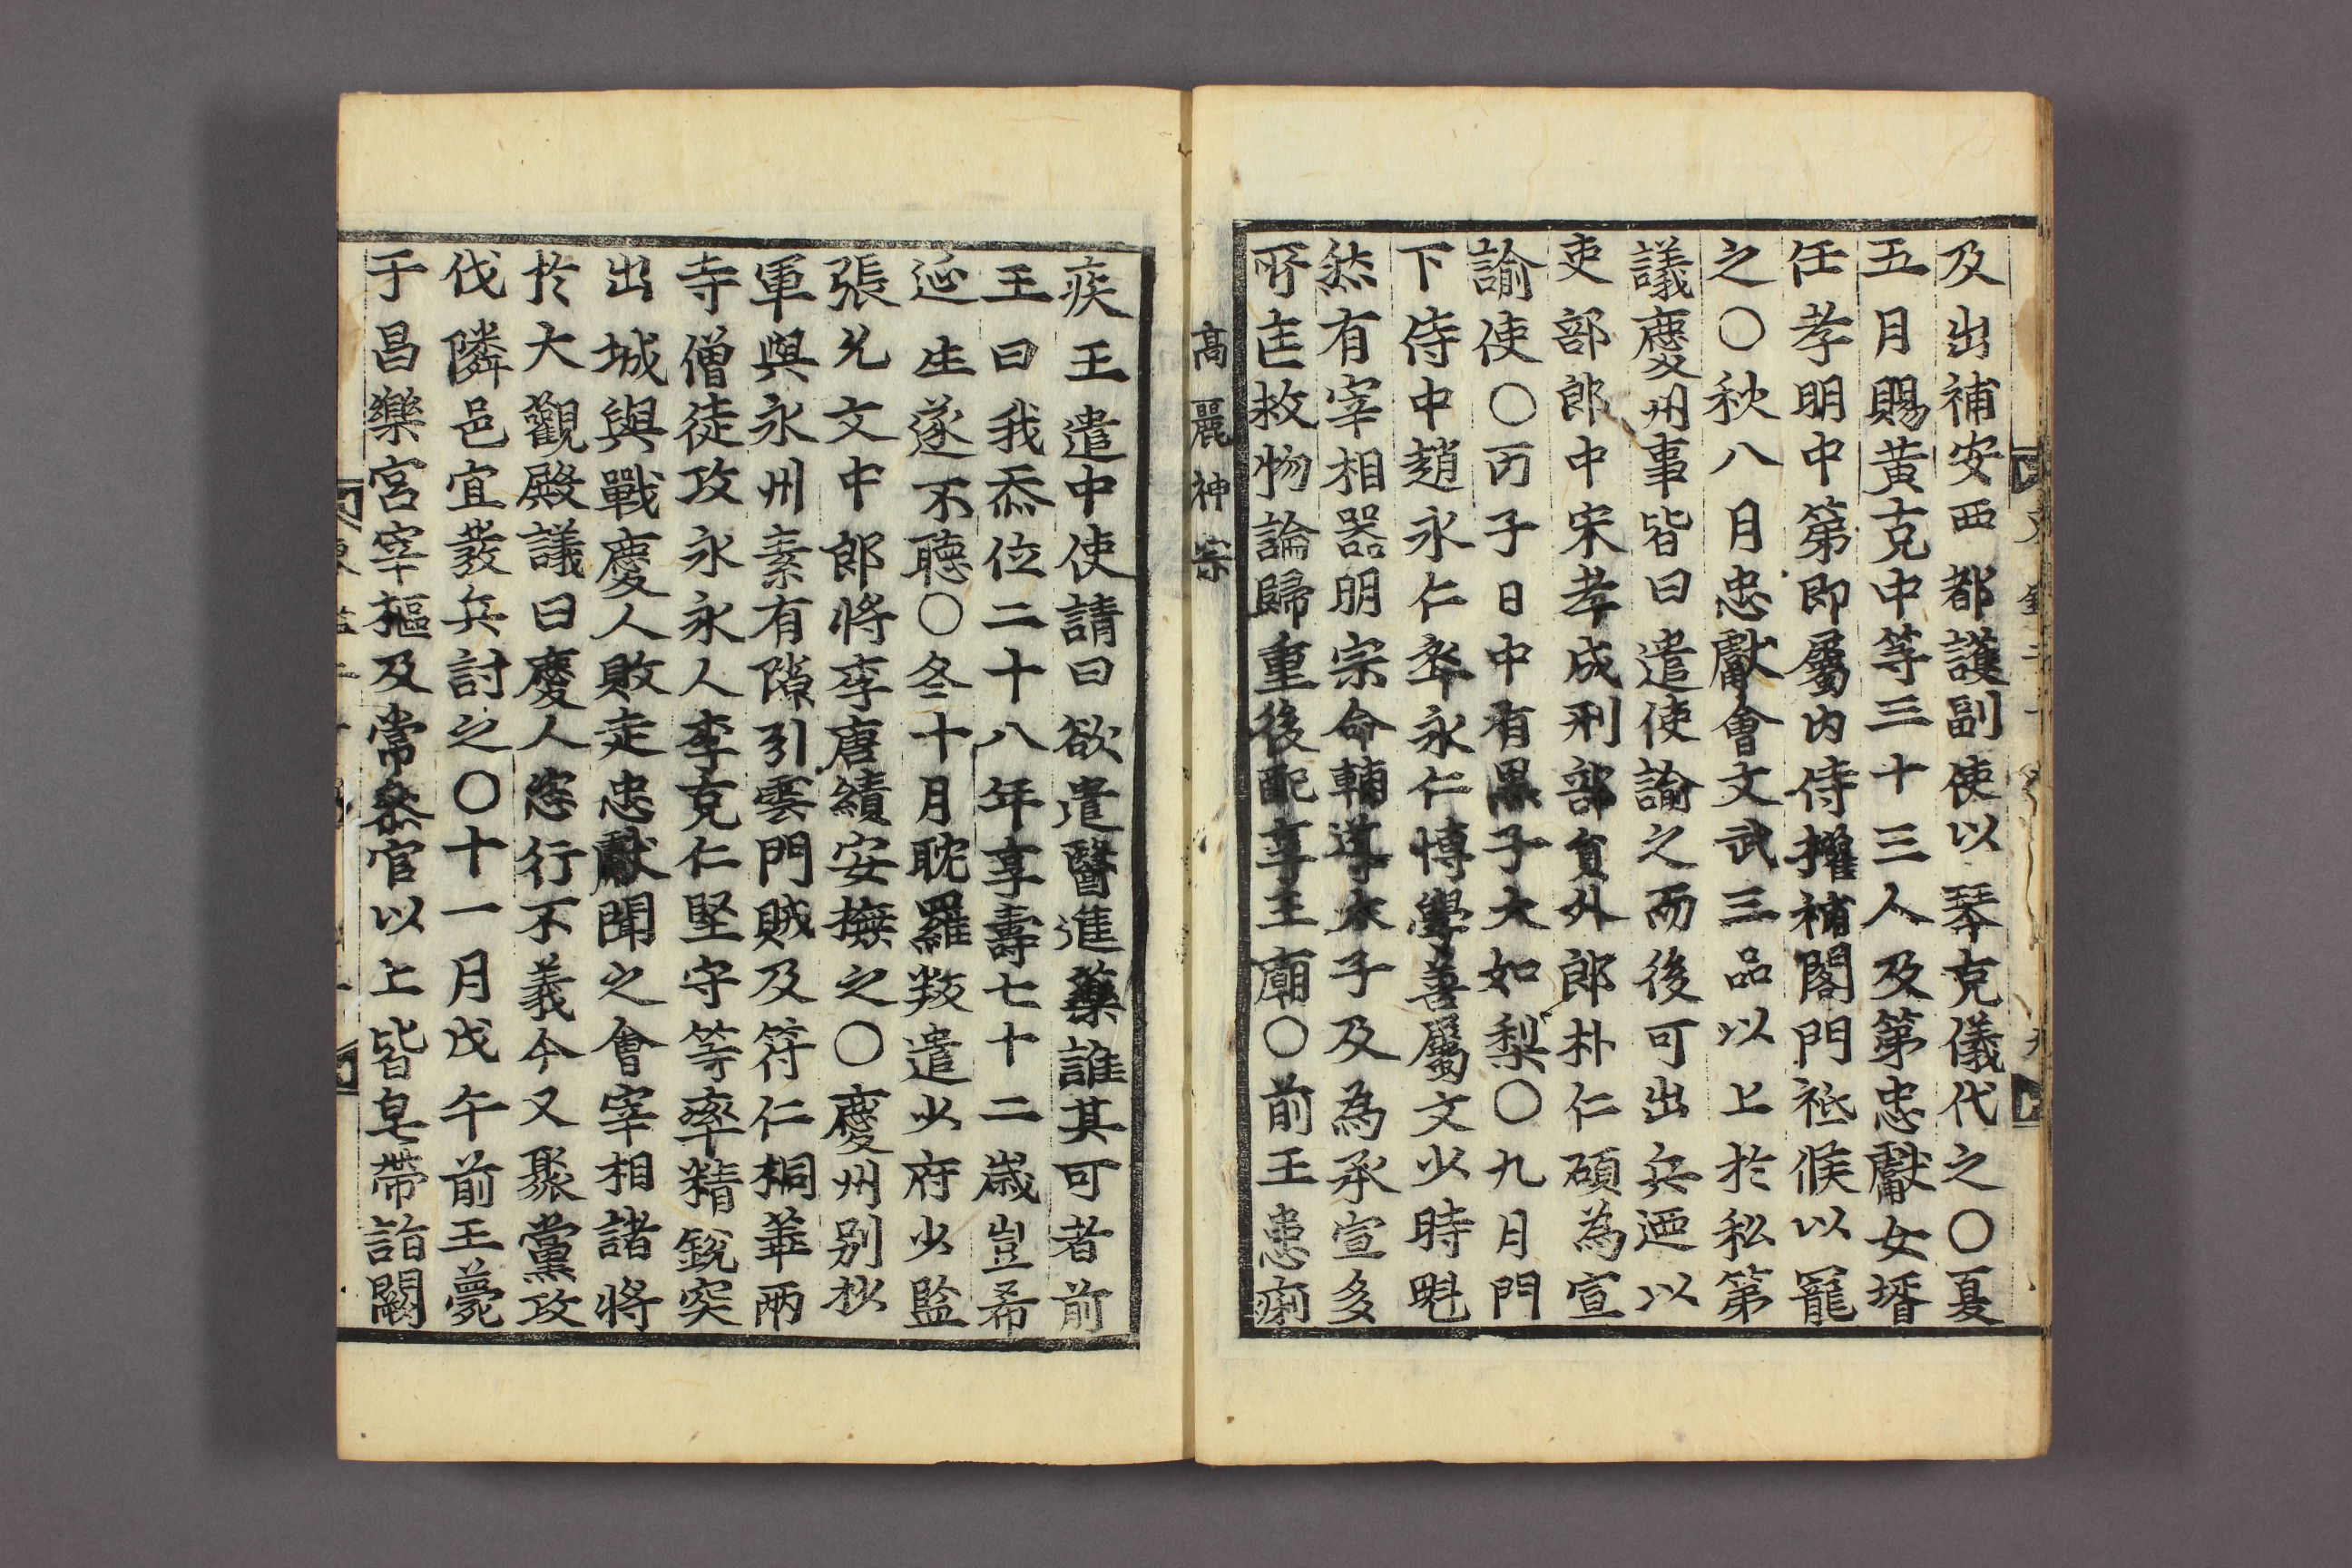 及出補安西都護副使以琴克儀代之○夏
五月賜黃克中等三十三人及第忠獻女壻
任孝明中第即屬內侍擢補閤門祗候以寵
之○秋八月忠獻會文武三品以上於私第
議慶州事皆曰遣使諭之而後可出兵迺以
吏部郎中宋孝成刑部員外郎朴仁碩為宣
諭使○丙子日中有黑子大如梨○九月門
下侍中趙永仁卒永仁博學善屬文少時魁
然有宰相器明宗命輔導太子及為承宣多
所匡救物論歸重後配享王廟○前王患痢
高麗神宗
疾王遣中使請曰欲遣醫進藥誰其可者前
王曰我忝位二十八年享壽七十二歲豈希
延生遂不聽○冬十月耽羅叛遣少府少監
張允文中郎將李唐績安撫之○慶州別抄
軍與永州素有隙引雲門賊及符仁桐華兩
寺僧徒攻永永人李克仁堅守等率精銳突
出城與戰慶人敗走忠獻聞之會宰相諸將
於大觀殿議曰慶人恣行不義今又聚黨攻
伐隣邑宜發兵討之○十一月戊午前王薨
于昌樂宮宰樞及常叅官以上皆皂帶詣闕